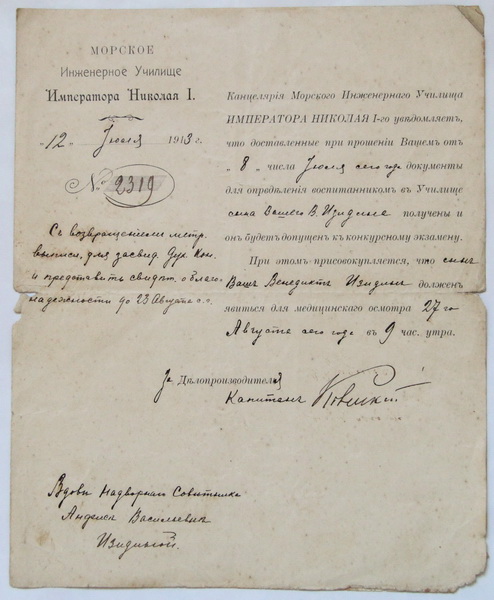 МОРСКОЕ
Инженерное Училище
Императора Николая I.
„12„ Іюля 1913 г.
№ 2319
Съ возвращеніемъ метр.
выписи, для засвид. Дух. Кон.
и представить свидѣт. о благо
надежности до 23 Августа с.г.
Канцелярія Морского Инженернаго Училища
ИМПЕРАТОРА НИКОЛАЯ I-го увѣдомляетъ,
что доставленные при прошеніи Вашемъ отъ
„8„ числа Іюля сего года документы
для опредѣленія воспитанникомъ въ Училище
сына Вашего В. Изидина получены и
онъ будетъ допущенъ къ конкурсному экзамену.
При этомъ присовокупляется, что сынъ
Вашъ Венедиктъ долженъ
явиться для медицинскаго осмотра 27 го
Августа сего года въ 9 час. утра.
За Дѣлопроизводителя
Капитанъ
Вдовѣ Надворнаго Совѣтника
Васильевнѣ